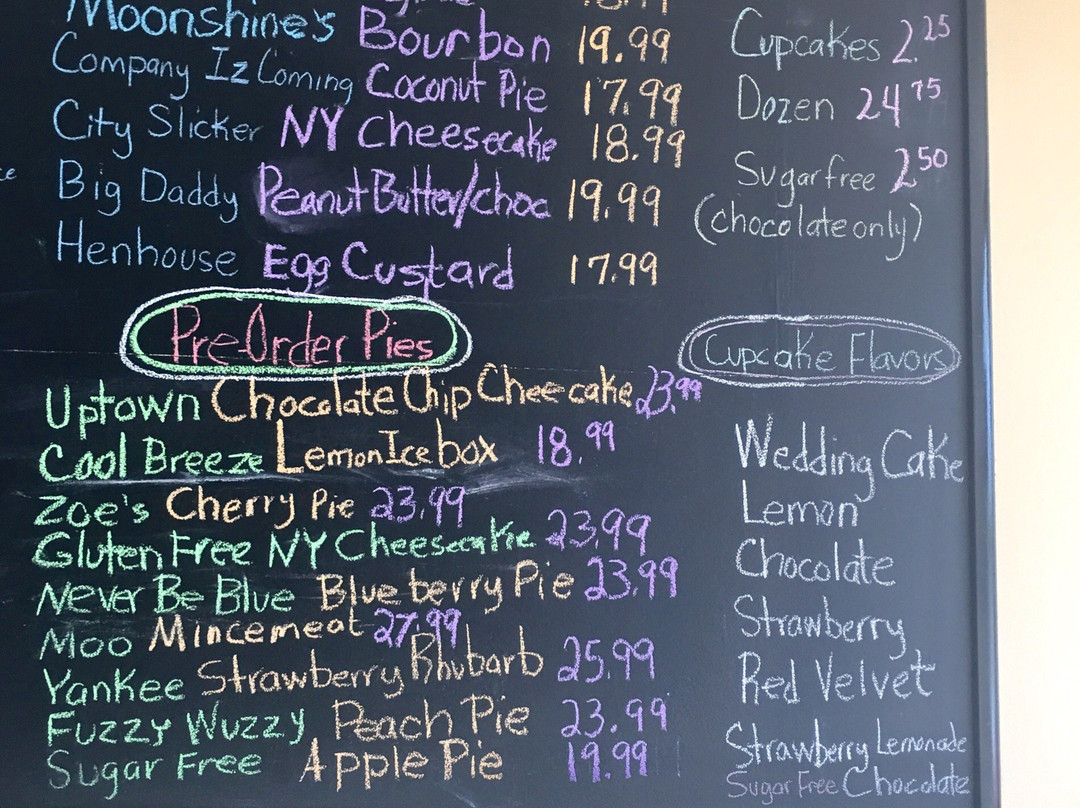 Moonshine's Bourbon 19.99
Company Iz Coming Coconut Pie 17.99
City Slicker NY Cheesecake 18.99
Big Daddy Peanut Butter/choc 19.99
Henhouse Egg Custard 17.99
Pre-Order Pies
Uptown Chocolate Chip Cheecake 23.99
Cool Breeze Lemon Icebox 18.99
Zoe's Cherry Pie 23.99
Gluten Free NY Cheesecake 23.99
Never Be Blue Blueberry Pie 23.99
Moo Mincemeat 27.99
Yankee Strawberry Rhubarb 25.99
Fuzzy Wuzzy Peach Pie 23.99
Sugar Free Apple Pie 19.99
Cupcakes 2.25
Dozen 24 75
Sugar free 2 50
(chocolate only)
Cupcake Flavors
Wedding Cake
Lemon
Chocolate
Strawberry
Red Velvet
Strawberry Lemonade
Sugar Free Chocolate